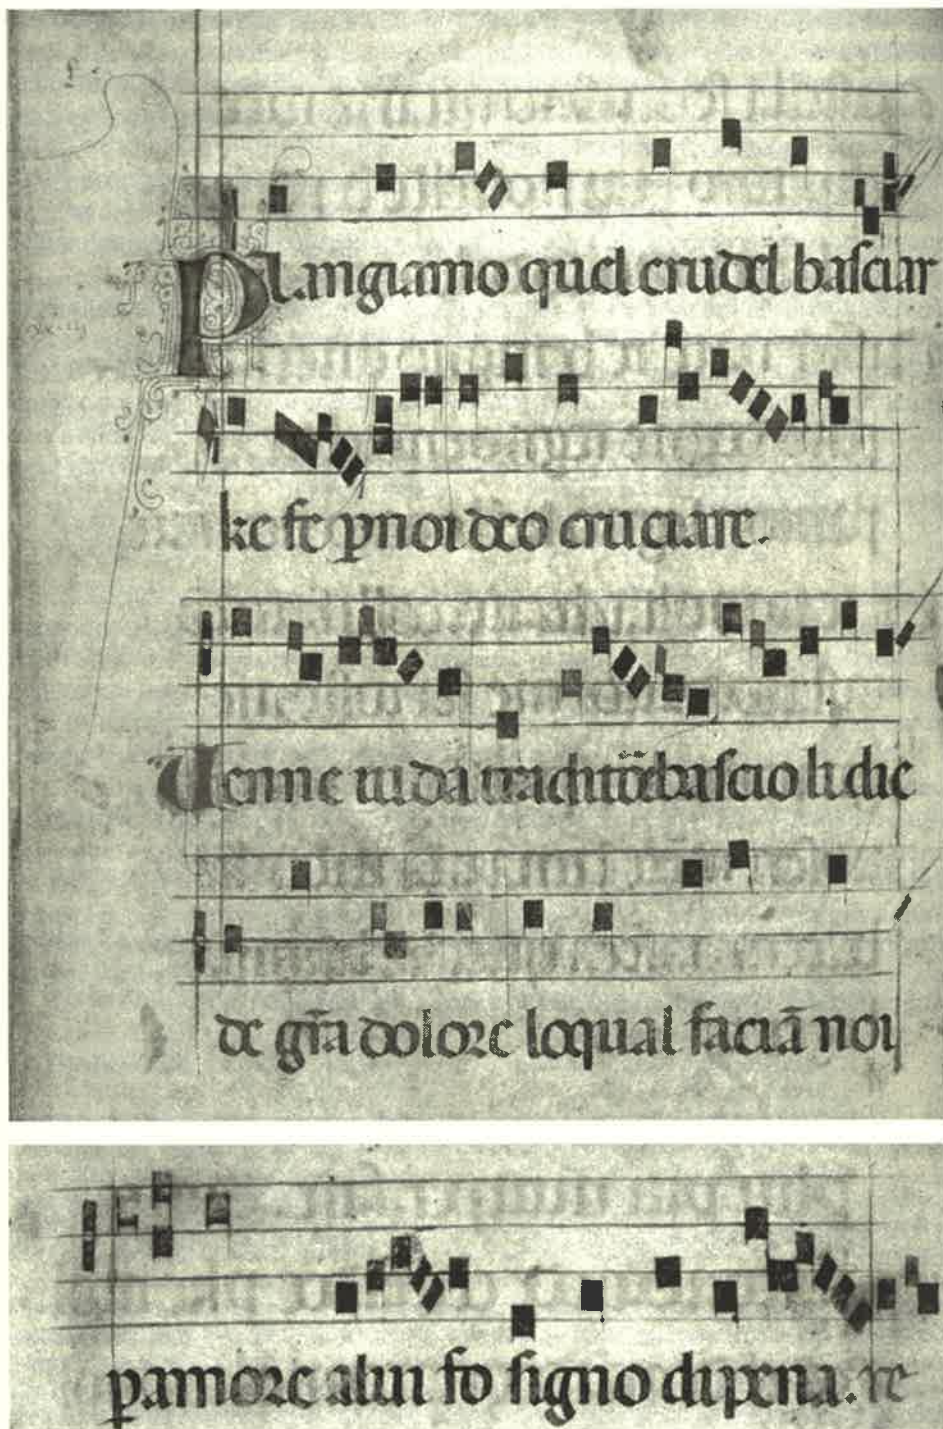 Plangiamo quel crudel basciar
ke fe p̄ noi deo cruciare.
Venne iuda traditōe bascio li die
de grā dolore lo qual faciā noi
p̄ amore a lui fo signo di pena.re